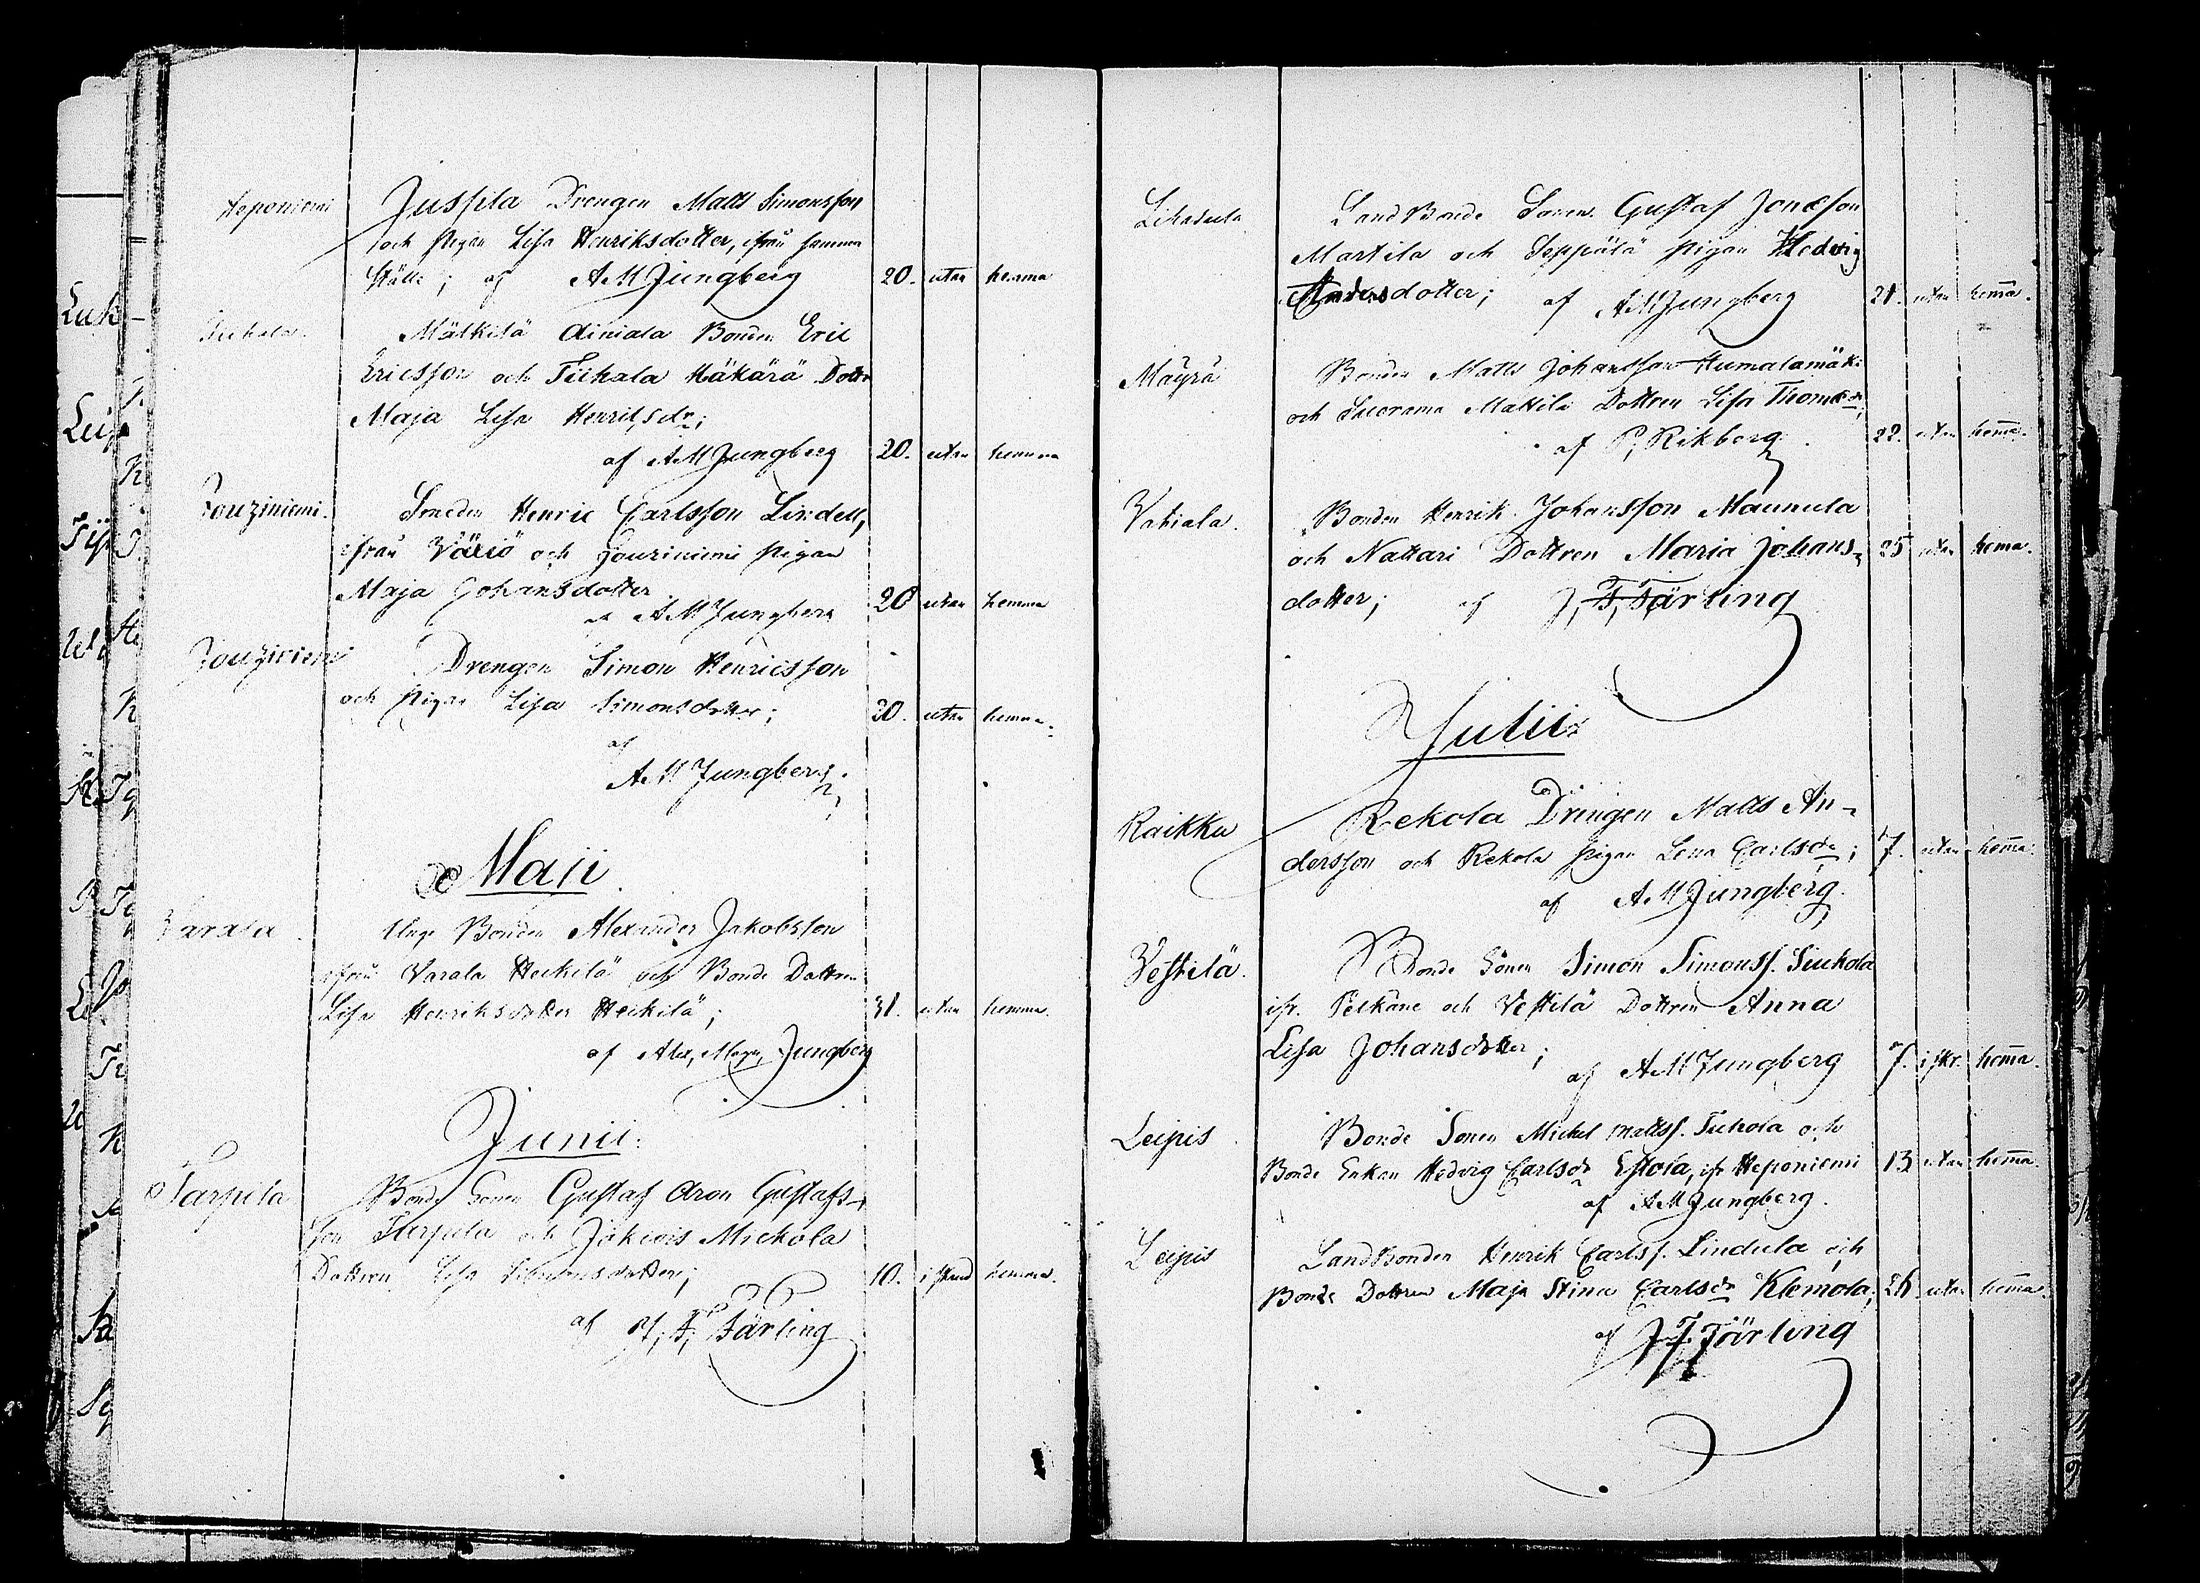 Heponiemi Jussila Drengen Matts Simonsson
och Pigan Lisa Henriksdotter, ifrån samma
ställe; af A M Jungberg 20. utan hemma
Tiihala. Mälkilä Ainiala Bonden Eric
Ericsson och Tiihala Käkärä Dottr
Maja Lisa Henriksdr;
af A M Jungberg 20. utan hemma
Jouziniemi. Smeden Henric Carlsson Lindell,
ifrån och Jouziniemi Pigan
Maja Johansdotter
af A M Jungberg 20 utan hemma
Jouziniemi Drengen Simon Henricsson
och Pigan Lisa Simonsdotter; 20. utan hemma.
af
A. M Jungberg
Maji
Varala Unge Bonden Alexander Jakobsson
ifrån Varala Heikilä och Bonde Dottren
Lisa Henriksdotter Heikilä; 31. utan hemma.
af Alex, Magn, Jungberg
Junii.
Tarpila Bonde Sonen Gustaf Aron Gustafs-
son Tarpila och Jokiois Mickola
Dottren Lisa 10. hemma.
af J, F, Färling
Lihasula Land Bonde Sonen Gustaf Jonæson
Martila och Seppälä Pigan Hedvig
Andersdotter; af A M Jungberg 21. utan hema.
Mäyrä Bonden Matts Johansson Humalamäki
och Suorama Mattila Dottren Lisa Thomædr;
af P, Rikberg. 22. utan hema.
Vatiala. Bonden Henrik Johansson Maunula
och Nattari Dottren Maria Johans- 25 utan hema.
dotter; af J, F, Färling
Julii
Raikku Rekola Drängen Matts An-
dersson och Rekola Pigan Lena Carlsdr; 7. utan hema.
af A. M Jungberg.
Vestilä. Bonde Sonen Simon Simonss. Tiihola
ifr. Pelkäne och Vestilä Dottren Anna
Lisa Johansdotter;
af A M Jungberg 7. i skr. hema.
Leipis Bonde Sonen Mickel Mattss. Tiihola och
Bonde Enkan Hedvig Carlsdr Estola, ifr Heponiemi 13 utan hema.
af A M Jungberg.
Leipis LandBonden Henrik Carlss. Lindula och
Bonde Dottren Maja Stina Carlsdr Klemola; 26 utan hema.
af J F Färling